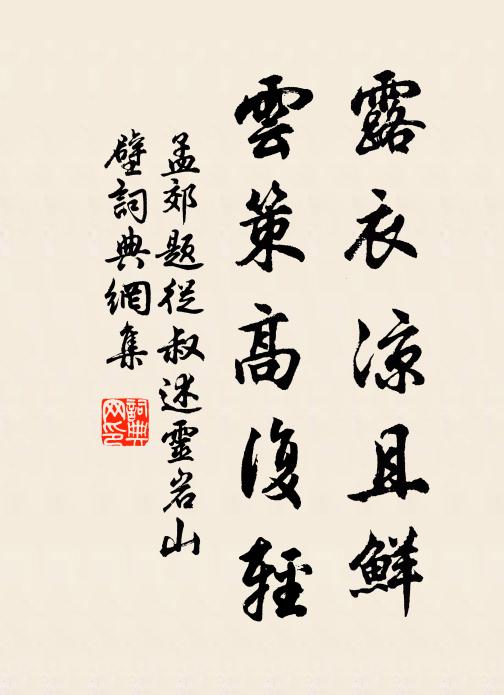 露衣涼且鮮
雲策高復輕
孟郊題從叔述靈岩山
壁詞典網集
詞典
网印